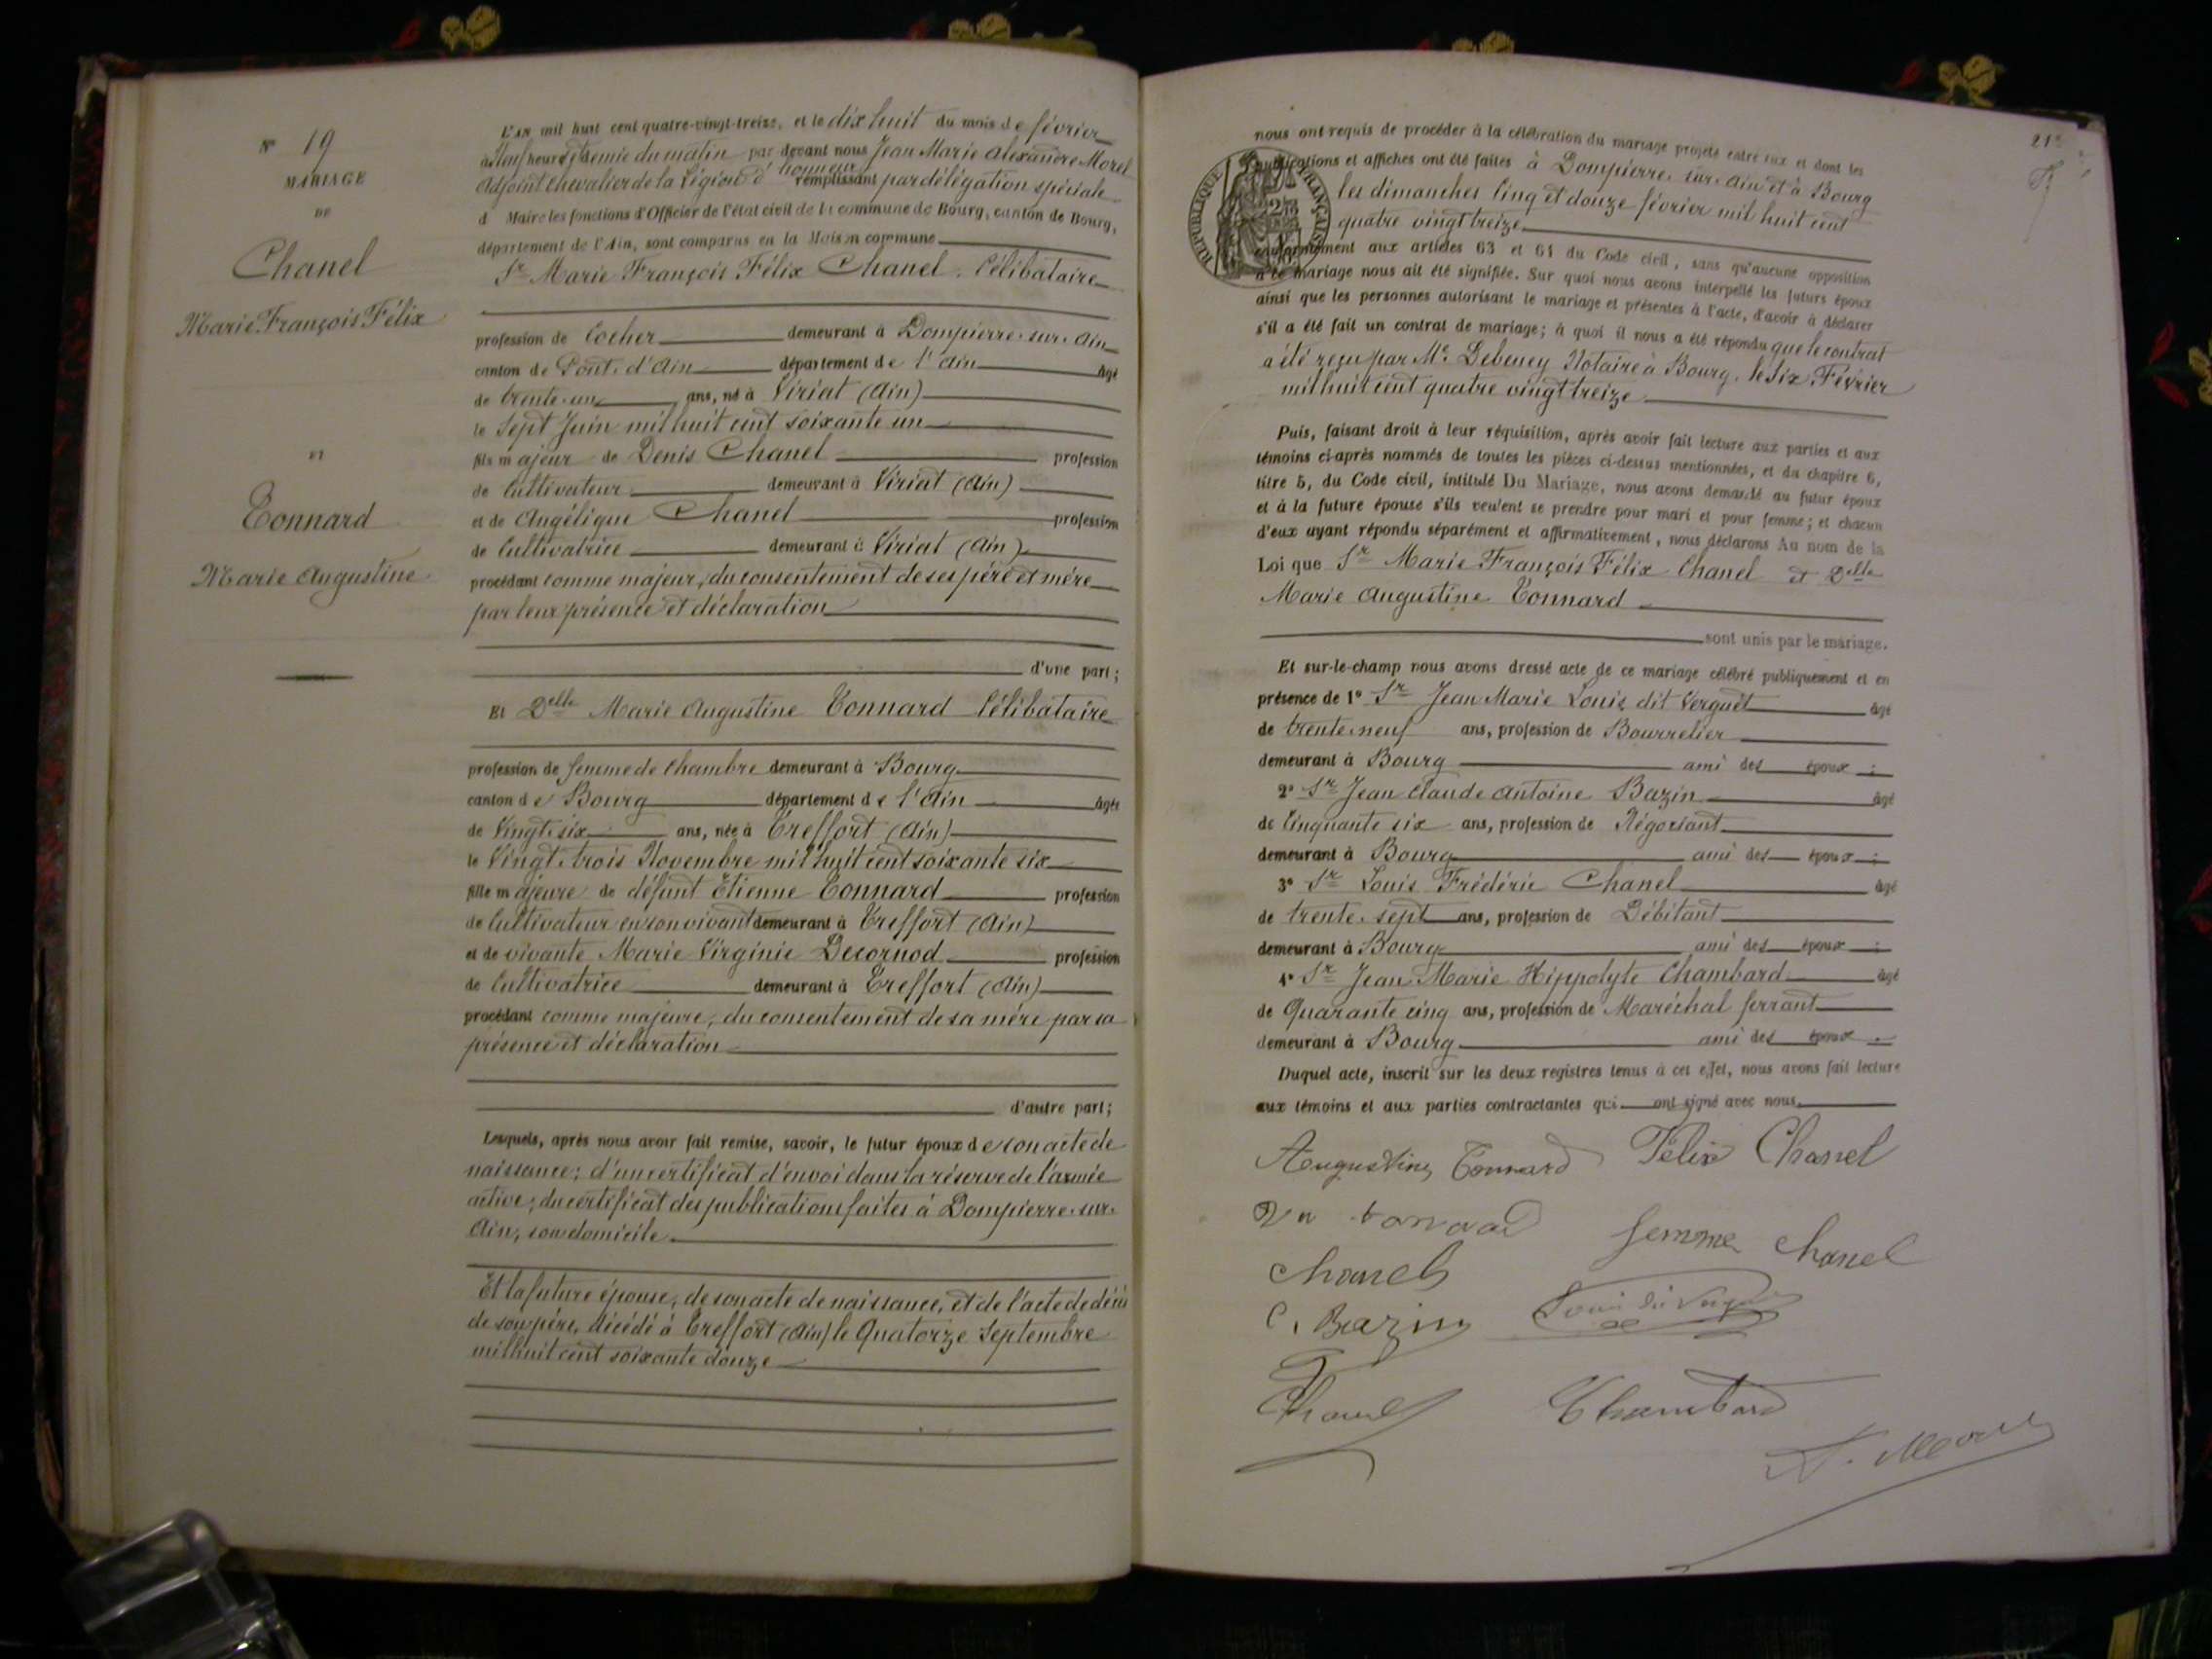 N° 19
MARIAGE
DE
Chanel
Marie François Félix
ET
Tonnard
Marie Augustine
L'AN mil huit cent quatre-vingt-treize, et le dix huit du mois de février
à neuf heures & demie du matin par devant nous Jean Marie Alexandre Morel
Adjoint Chevalier de la Légion d'honneur remplissant par délégation spéciale
d Maire les fonctions d'Officier de l'état civil de la commune de Bourg, canton de Bourg,
département de l'Ain, sont comparus en la Maison commune
Sr Marie François Félix Chanel, Célibataire
profession de Cocher demeurant à Dompierre-sur-Ain
canton de Pont-d'Ain département de l'Ain âgé
de trente-un ans, né à Viriat (Ain)
le Sept Juin mil huit cent soixante un
fils majeur de Denis Chanel profession
de Cultivateur demeurant à Viriat (Ain)
et de Angélique Chanel profession
de Cultivatrice demeurant à Viriat (Ain)
procédant comme majeur, du consentement de ses père et mère
par leur présence et déclaration
d'une part;
Et Delle Marie Augustine Tonnard Célibataire
profession de femme de chambre demeurant à Bourg
canton de Bourg département de l'Ain âgée
de Vingt-six ans, née à Treffort (Ain)
le Vingt-trois Novembre mil huit cent soixante six
fille majeure de défunt Etienne Tonnard profession
de Cultivateur en son vivant demeurant à Treffort (Ain)
et de vivante Marie Virginie Decornod profession
de Cultivatrice demeurant à Treffort (Ain)
procédant comme majeure, du consentement de sa mère par sa
présence et déclaration
d'autre part;
Lesquels, après nous avoir fait remise, savoir, le futur époux de son acte de
naissance; d'un certificat d'envoi dans la réserve de l'armée
active; du certificat des publications faites à Dompierre-sur-
Ain, son domicile.
Et la future épouse, de son acte de naissance, et de l'acte de décès
de son père, décédé à Treffort (Ain) le Quatorze Septembre
mil huit cent soixante douze
21e
nous ont requis de procéder à la célébration du mariage projeté entre eux et dont les
publications et affiches ont été faites à Dompierre-sur-Ain et à Bourg
les dimanches Cinq et douze février mil huit cent
quatre vingt treize
RÉPUBLIQUE FRANÇAISE
conformément aux articles 63 et 64 du Code civil, sans qu'aucune opposition
à ce mariage nous ait été signifiée. Sur quoi nous avons interpellé les futurs époux
ainsi que les personnes autorisant le mariage et présentes à l'acte, d'avoir à déclarer
s'il a été fait un contrat de mariage; à quoi il nous a été répondu que le contrat
a été reçu par Me Debeney Notaire à Bourg, le Six Février
mil huit cent quatre vingt treize
Puis, faisant droit à leur réquisition, après avoir fait lecture aux parties et aux
témoins ci-après nommés de toutes les pièces ci-dessus mentionnées, et du chapitre 6,
titre 5, du Code civil, intitulé Du Mariage, nous avons demandé au futur époux
et à la future épouse s'ils veulent se prendre pour mari et pour femme; et chacun
d'eux ayant répondu séparément et affirmativement, nous déclarons Au nom de la
Loi que Sr Marie François Félix Chanel et Delle
Marie Augustine Tonnard
sont unis par le mariage.
Et sur-le-champ nous avons dressé acte de ce mariage célébré publiquement et en
présence de 1° Sr Jean Marie Louis dit Verguet âgé
de trente-neuf ans, profession de Bourrelier
demeurant à Bourg ami des époux ;
2° Sr Jean Claude Antoine Bazin âgé
de Cinquante six ans, profession de Négociant
demeurant à Bourg ami des époux ;
3° Sr Louis Frédéric Chanel âgé
de trente-sept ans, profession de Débitant
demeurant à Bourg ami des époux ;
4° Sr Jean Marie Hippolyte Chambard âgé
de Quarante cinq ans, profession de Maréchal ferrant
demeurant à Bourg ami des époux .
Duquel acte, inscrit sur les deux registres tenus à cet effet, nous avons fait lecture
aux témoins et aux parties contractantes qui ont signé avec nous.
Augustine Tonnard Félix Chanel
Ve tonnard femme chanel
chanel
C. Bazin Louis dit Verguet
Chanel Chambard
A. Morel